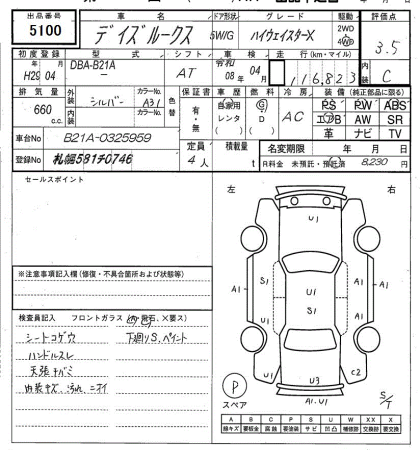 出品番号 車名 ドア形状 グレード 駆動 評価点
5100 デイズルークス 5W/G ハイウェイスターX 2WD 4WD 3.5
初度登録 型式 シフト 車検 走行(km・マイル) 内装
H29年04月 DBA-B21A AT 令和08年04月 116,823 C
排気量 外装 カラーNo. 色替 保証書 車歴 燃料 冷房 装備(純正部品に限る)
660c.c. シルバー A31 有・無 自家用 レンタ ( ) G D ( ) AC PS PW ABS
内装 カラーNo. エアB AW SR
革 ナビ TV
車台No B21A-0325959 定員 積載量 名変期限 年 月 日
登録No 札幌581チ0746 4人 t R料金 未預託・預託済 8,230円
セールスポイント
左 右
U1
A1 S1 U1 S1 A1 A1
※注意事項記入欄(修復・不具合箇所および状態等)
検査員記入 フロントガラス(飛石、×要ス)
シートコゲウ 下廻りS、ペイント
ハンドルスレ
天張キバミ
内装キズ、汚れ、ニオイ
U1 C2
U3
P A1.U1 S/T
スペア
A B C P S U W X XX
線キズ 要板金 腐蝕 要塗装 サビ 凹凸 補修跡 要交換 交換済